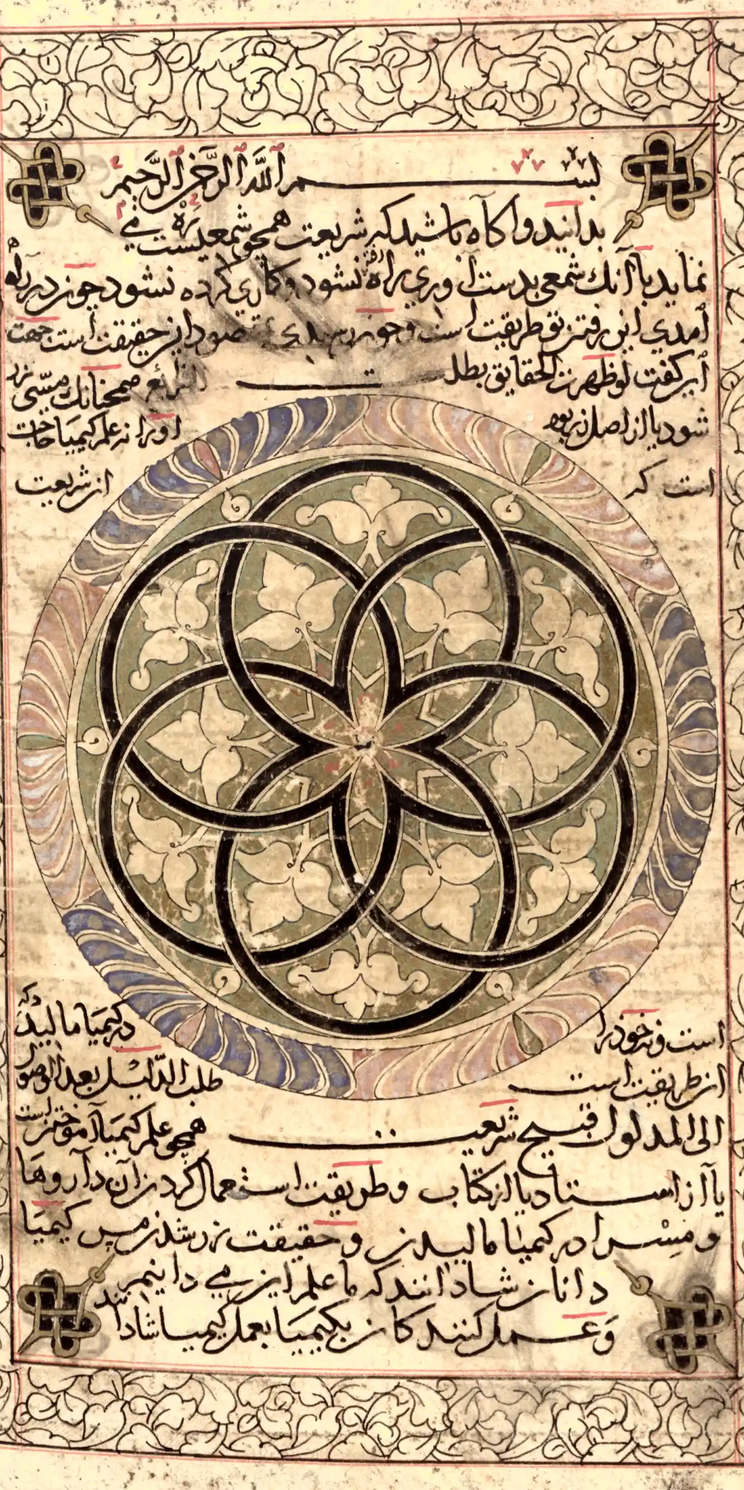 بسم الله الرحمن الرحيم
بدانید و آکاه باشید که شریعت همچو شمعیست ره می
نماید بی آنك شمعی بدست آوری راه رفته نشود و کاری کرده نشود چون در راه
آمدی این رفتن تو طریقت است و چون رسیدی مقصود این حقیقت است جهت
این کفت لو ظهرت الحقایق بطلت الشرائع همچنانك مسی زر
شود یا از اصل زر بود او را نه علم کیمیا حاجت
است که از شریعت
است و نه خود را در کیمیا مالیدن که
از طریقت است طلب الدلیل بعد الوصول
الی المدلول قبیح شریعت همچو علم کیمیا آموختن است
یا از استاد یا از کتاب و طریقت استعمال کردن آن داروها
و مس را در کیمیا مالیدن و حقیقت زر شدن مس کیمیا
دانان شادانند که ما علم این می دانیم
و عمل کنندکان بکیمیا بعمل کیمیا شادانند